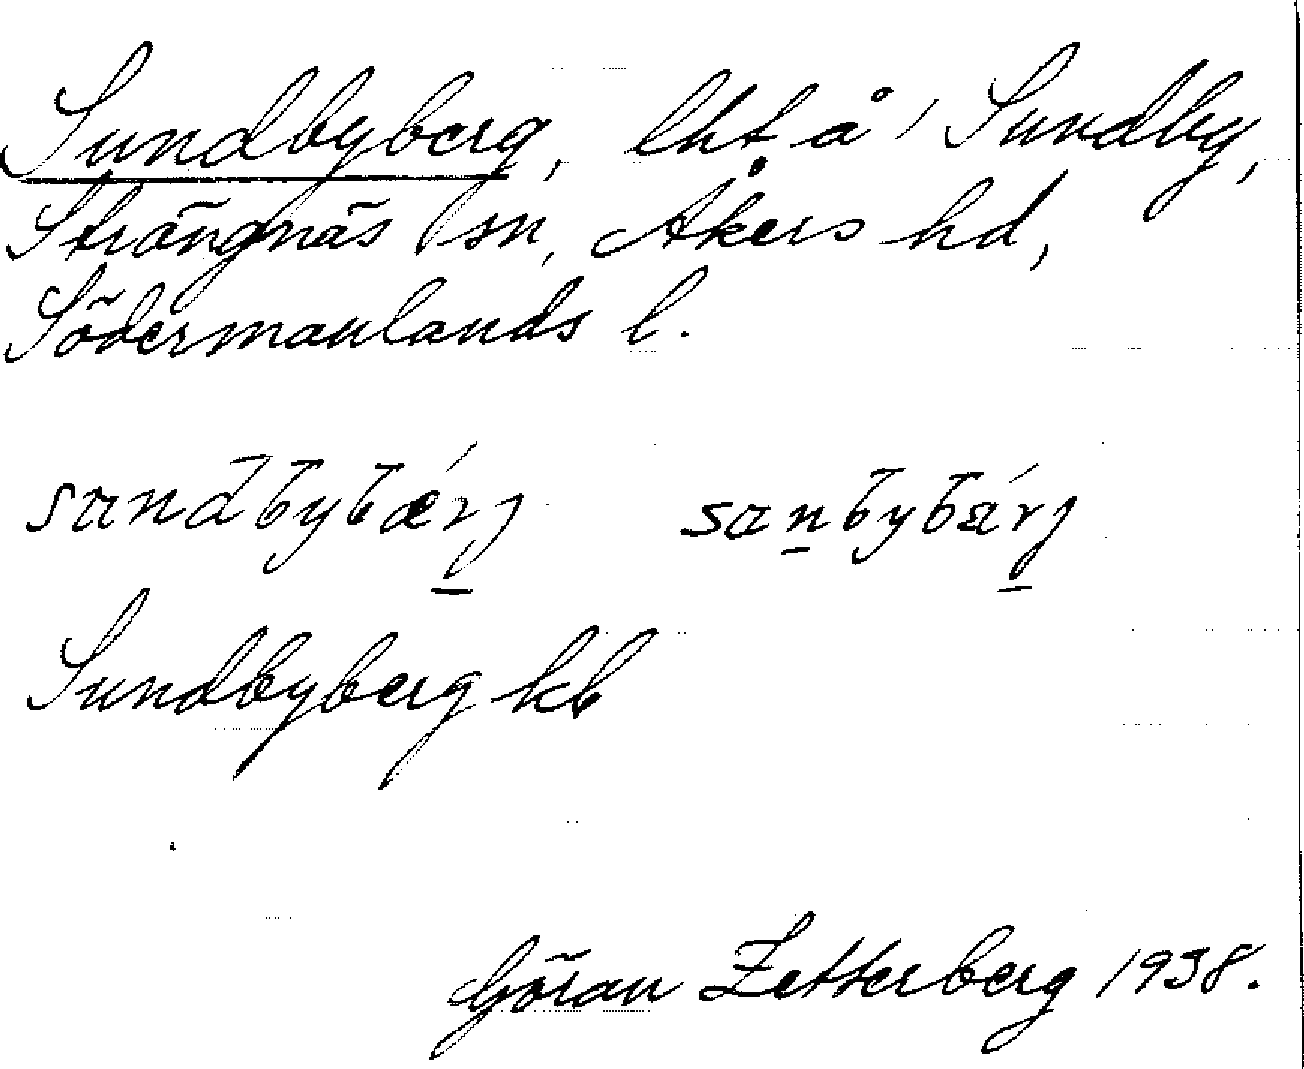 Sundbyberg, lht å ' Sundby,
Strängnäs sn, Åkers hd,
Södermanlands l.
Sundbyberg kb
Göran Zetterberg 1938.